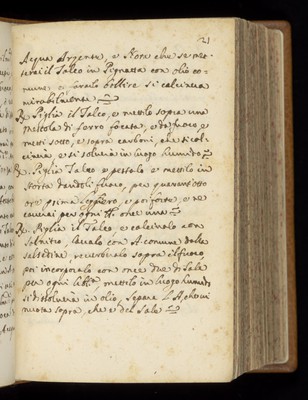 121
Acqua Argente, e
terai il Talco in Pignatta con olio co-
mune, e faralo bollire si calcinera
mirabilmente
Rx. Piglia il Talco, e mettilo sopra una
pallola di ferro focata, e da fuoco, e
metti sotto, e sopra carboni, che si cal-
cinera, e si soluera in luogo humido
Rx. Piglia Talco e pestalo e mettilo in
storta dandoli fuoco, per quarant'otto
ore prima leggiero, e poi forte, e ne
cauerai per ogni lb. onc. una
Rx. Piglia il Talco, e calcinalo con
salnitro, laualo con A. comune dalla
salsedine, reuerberalo sopra il fuoco
poi incorporalo con once due di sale
per ogni libra mettilo in luogo humido
si dissoluera in olio, separa L'A. che ui
nuota sopra, che e del sale